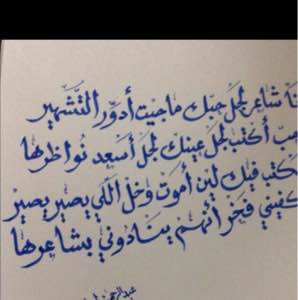 نا شاعر لجل حبك ماجيت أدوّر التّشهير
حب أكتب لجل عينك لجل أسعد نواظرها
كتب فيك لين أموت وخل اللي يصير يصير
كفيني فخر أنهم ينادوني بشاعرها
عبدالرحمن